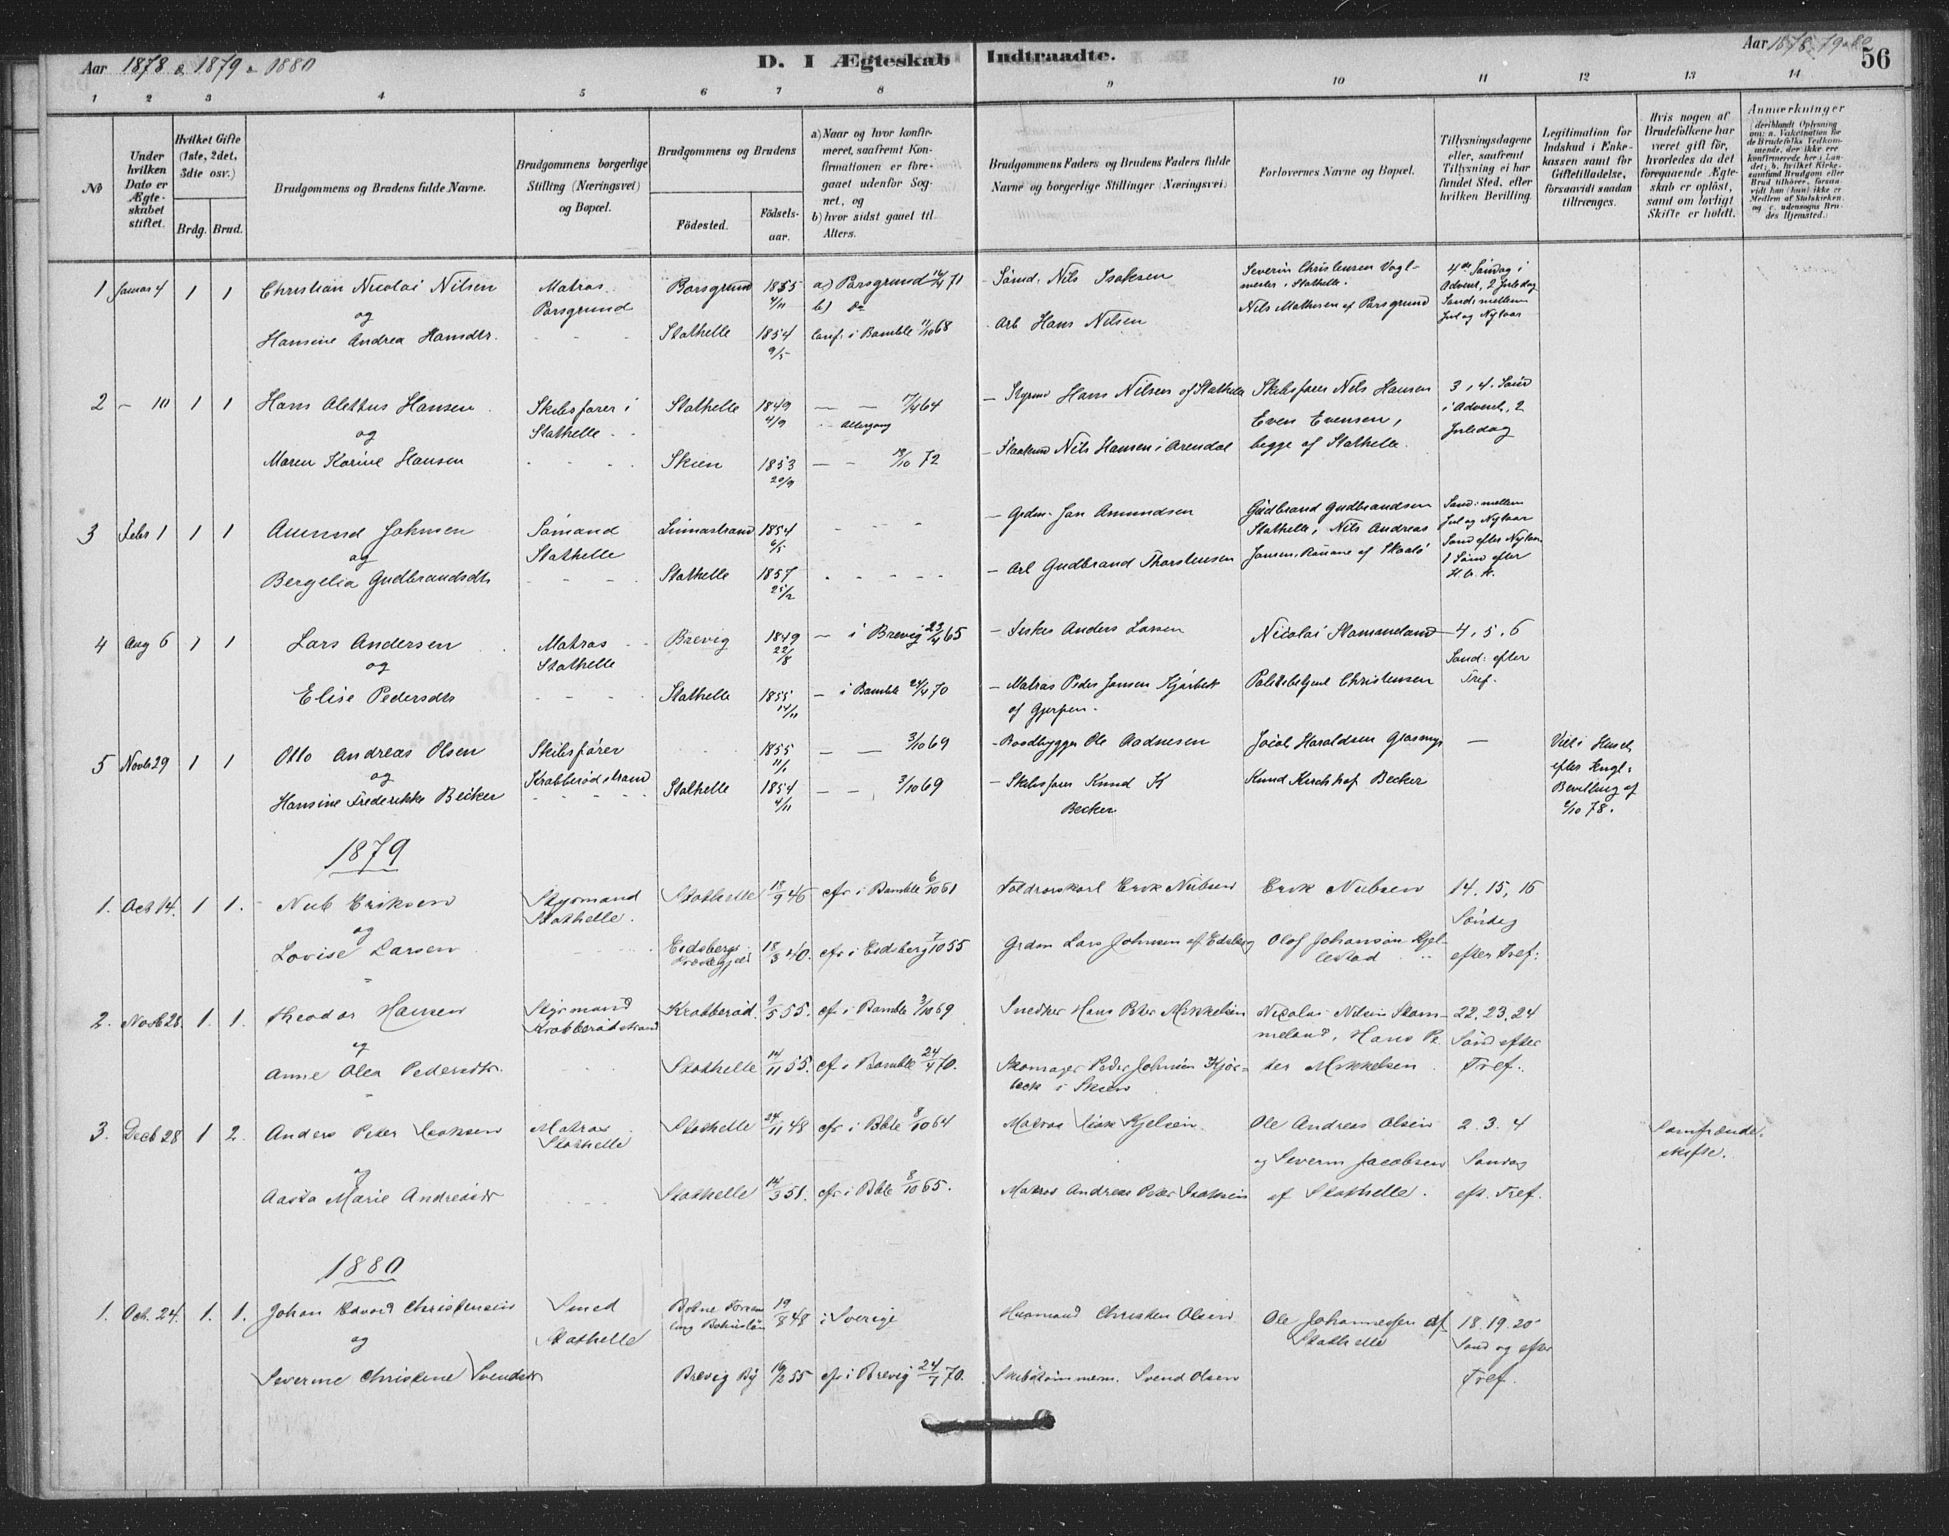 Aar 1878 & 1879 & 1880
D. I Ægteskab Indtraadte.
Aar 1878-79-80
56
1 2 3 4 5 6 7 8 9 10 11 12 13 14
No
Under hvilken Dato er Ægteskabet stiftet.
Hvilket Gifte (1ste, 2det, 3die osv.)
Brdg. Brud.
Brudgommens og Brudens fulde Navne.
Brudgommens borgerlige Stilling (Næringsvei) og Bopæl.
Brudgommens og Brudens
Fødested.
Fødselsaar.
a) Naar og hvor konfirmeret, saafremt Konfirmationen er foregaaet udenfor Sognet, og
b) hvor sidst gaaet til Alters.
Brudgommens Faders og Brudens Faders fulde Navne og borgerlige Stillinger (Næringsvei)
Forlovernes Navne og Bopæl.
Tillysningsdagene eller, saafremt Tillysning ei har fundet Sted, efter hvilken Bevilling.
Legitimation for Indskud i Enkekassen samt for Giftetilladelse, forsaavidt saadan tiltrænges.
Hvis nogen af Brudefolkene har været gift før, hvorledes da det foregaaende Ægteskab er opløst, samt om lovligt Skifte er holdt.
Anmærkninger (deriblandt Oplysning om: a. Vakcination for de Brudefolks Vedkommende, der ikke ere konfirmerede her i Landet; b. hvilket Kirkesamfund Brudgom eller Brud tilhører, forsaavidt han (hun) ikke er Medlem af Statskirken, og c. udensogns Brudes Hjemsted.)
1 Januar 4 1 1 Christian Nicolai Nilsen Matros Porsgrund Borsgrund 1855 4/11 a) Porsgrund 16/4 71 b) Do Sømd. Nils Isaksen Severin Christensen Vagtmester i Stathelle. 4de Søndag i Advent, 2 Juledag
og Nils Mathesen af Porsgrund Sønd: mellem Jul og Nytaar
Hansine Andrea Hansdtr. Stathelle 1854 9/5 Conf: i Bamble 11/10 68 Arb Hans Nilsen
2 - 10 1 1 Hans Alettus Hansen Skibsfører i Stathelle Stathelle 1849 4/9 17/4 64 Altergang Styrmd Hans Nilsen af Stathelle Skibsfører Nils Hansen 3, 4. Sønd i Advent, 2 Juledag
og Even Evensen,
Maren Karine Hansen Skien 1853 20/9 13/10 72 Nils Hansen i Arendal begge af Stathelle.
3 Febr 1 1 1 Amund Johnsen Sømand Stathelle 1854 6/5 Grdm. Jan Amundsen Gudbrand Gudbrandsen Stathelle, Nils Andreas Jansen, af Skaalø Sønd: mellem Jul og Nytaar Sønd efter Nytaar 1 Sønd efter H. 3. K.
og
Bergelia Gudbrandsdtr Stathelle 1857 25/2 Arb Gudbrand Thorstensen
4 Aug 6 1 1 Lars Andersen Matros Stathelle Brevig 1849 22/8 i Brevig 23/4 65 Anders Larsen Nicolai Stammeland 4, 5, 6 Sønd: efter Tref.
og
Elise Pedersdtr Stathelle 1855 14/11 i Bamble 24/4 70 Matros Peder Jansen Kjørbek af Gjerpen. Politibetjent Christensen
5 Novb 29 1 1 Otto Andreas Olsen Skibsfører Krabberødstrand 1855 11/1 3/10 69 Baadbygger Ole Aadnesen Jacob Haraldsen Viet i Huset efter Kngl: Bevilling af 78.
og
Hansine Frederikke Becker Stathelle 1854 4/11 3/10 69 Skibsfører Knud K Becker Knud Kirchhof Becker
1879
1. Oct 14. 1 1. Eriksen Styrmand Stathelle. Stathelle 18/9 46 cfr i Bamble 6/10 61 Toldroerskarl Erik Erik 14. 15, 16 Søndag efter Tref:
og
Lovise Larsen Eidsberg Præstegjeld 18/3 40. cfr i Eidsberg 7/10 55 Grdm Lars Johnsen af Edsberg Olof Johanson Kjellestad
2. Novb 28. 1. 1. Theodor Hansen Styrmand Krabberødstrand Krabberød. 9/5 55. cf i Bamble 3/10 69 Snedker Hans Peter Mikkelsen Nicolai Nilsen Stammeland, Hans Peder Mikkelsen 22. 23. 24 Sønd efter Tref.
og
Anne Olea Pedersdtr. Stathelle 14/11 55. cf i Bamble 24/4 70. Skomager Peder Johnsen Kjørbeck i Skien
3. Decb 28 1 2. Anders Peter Isaksen Matros Stathelle Stathelle 24/11 48 cfr i Bble 8/10 64 Matros Isak Kjelsen. Ole Andreas Olsen og Severin Jacobsen af Stathelle. 2. 3. 4 Søndag eft. Tref. Samfrændeskifte.
og
Aasta Marie Andreasdtr Stathelle 14/3 51. cfr i Bble 8/10 65. Matros Andreas Peter Isaksen
1880
1. Oct. 24. 1. 1. Johan Edvard Christensen Smed Stathelle Bohuslän 19/8 48 i Sverige Husmand Christen Olsen Ole Johannessen af Stathelle 18. 19. 20 Sønd og efter Tref.
og
Severine Christine Svendsdtr Brevig By 16/2 55 cfr i Brevig 24/4 70. Skibstømmerm. Svend Olsen